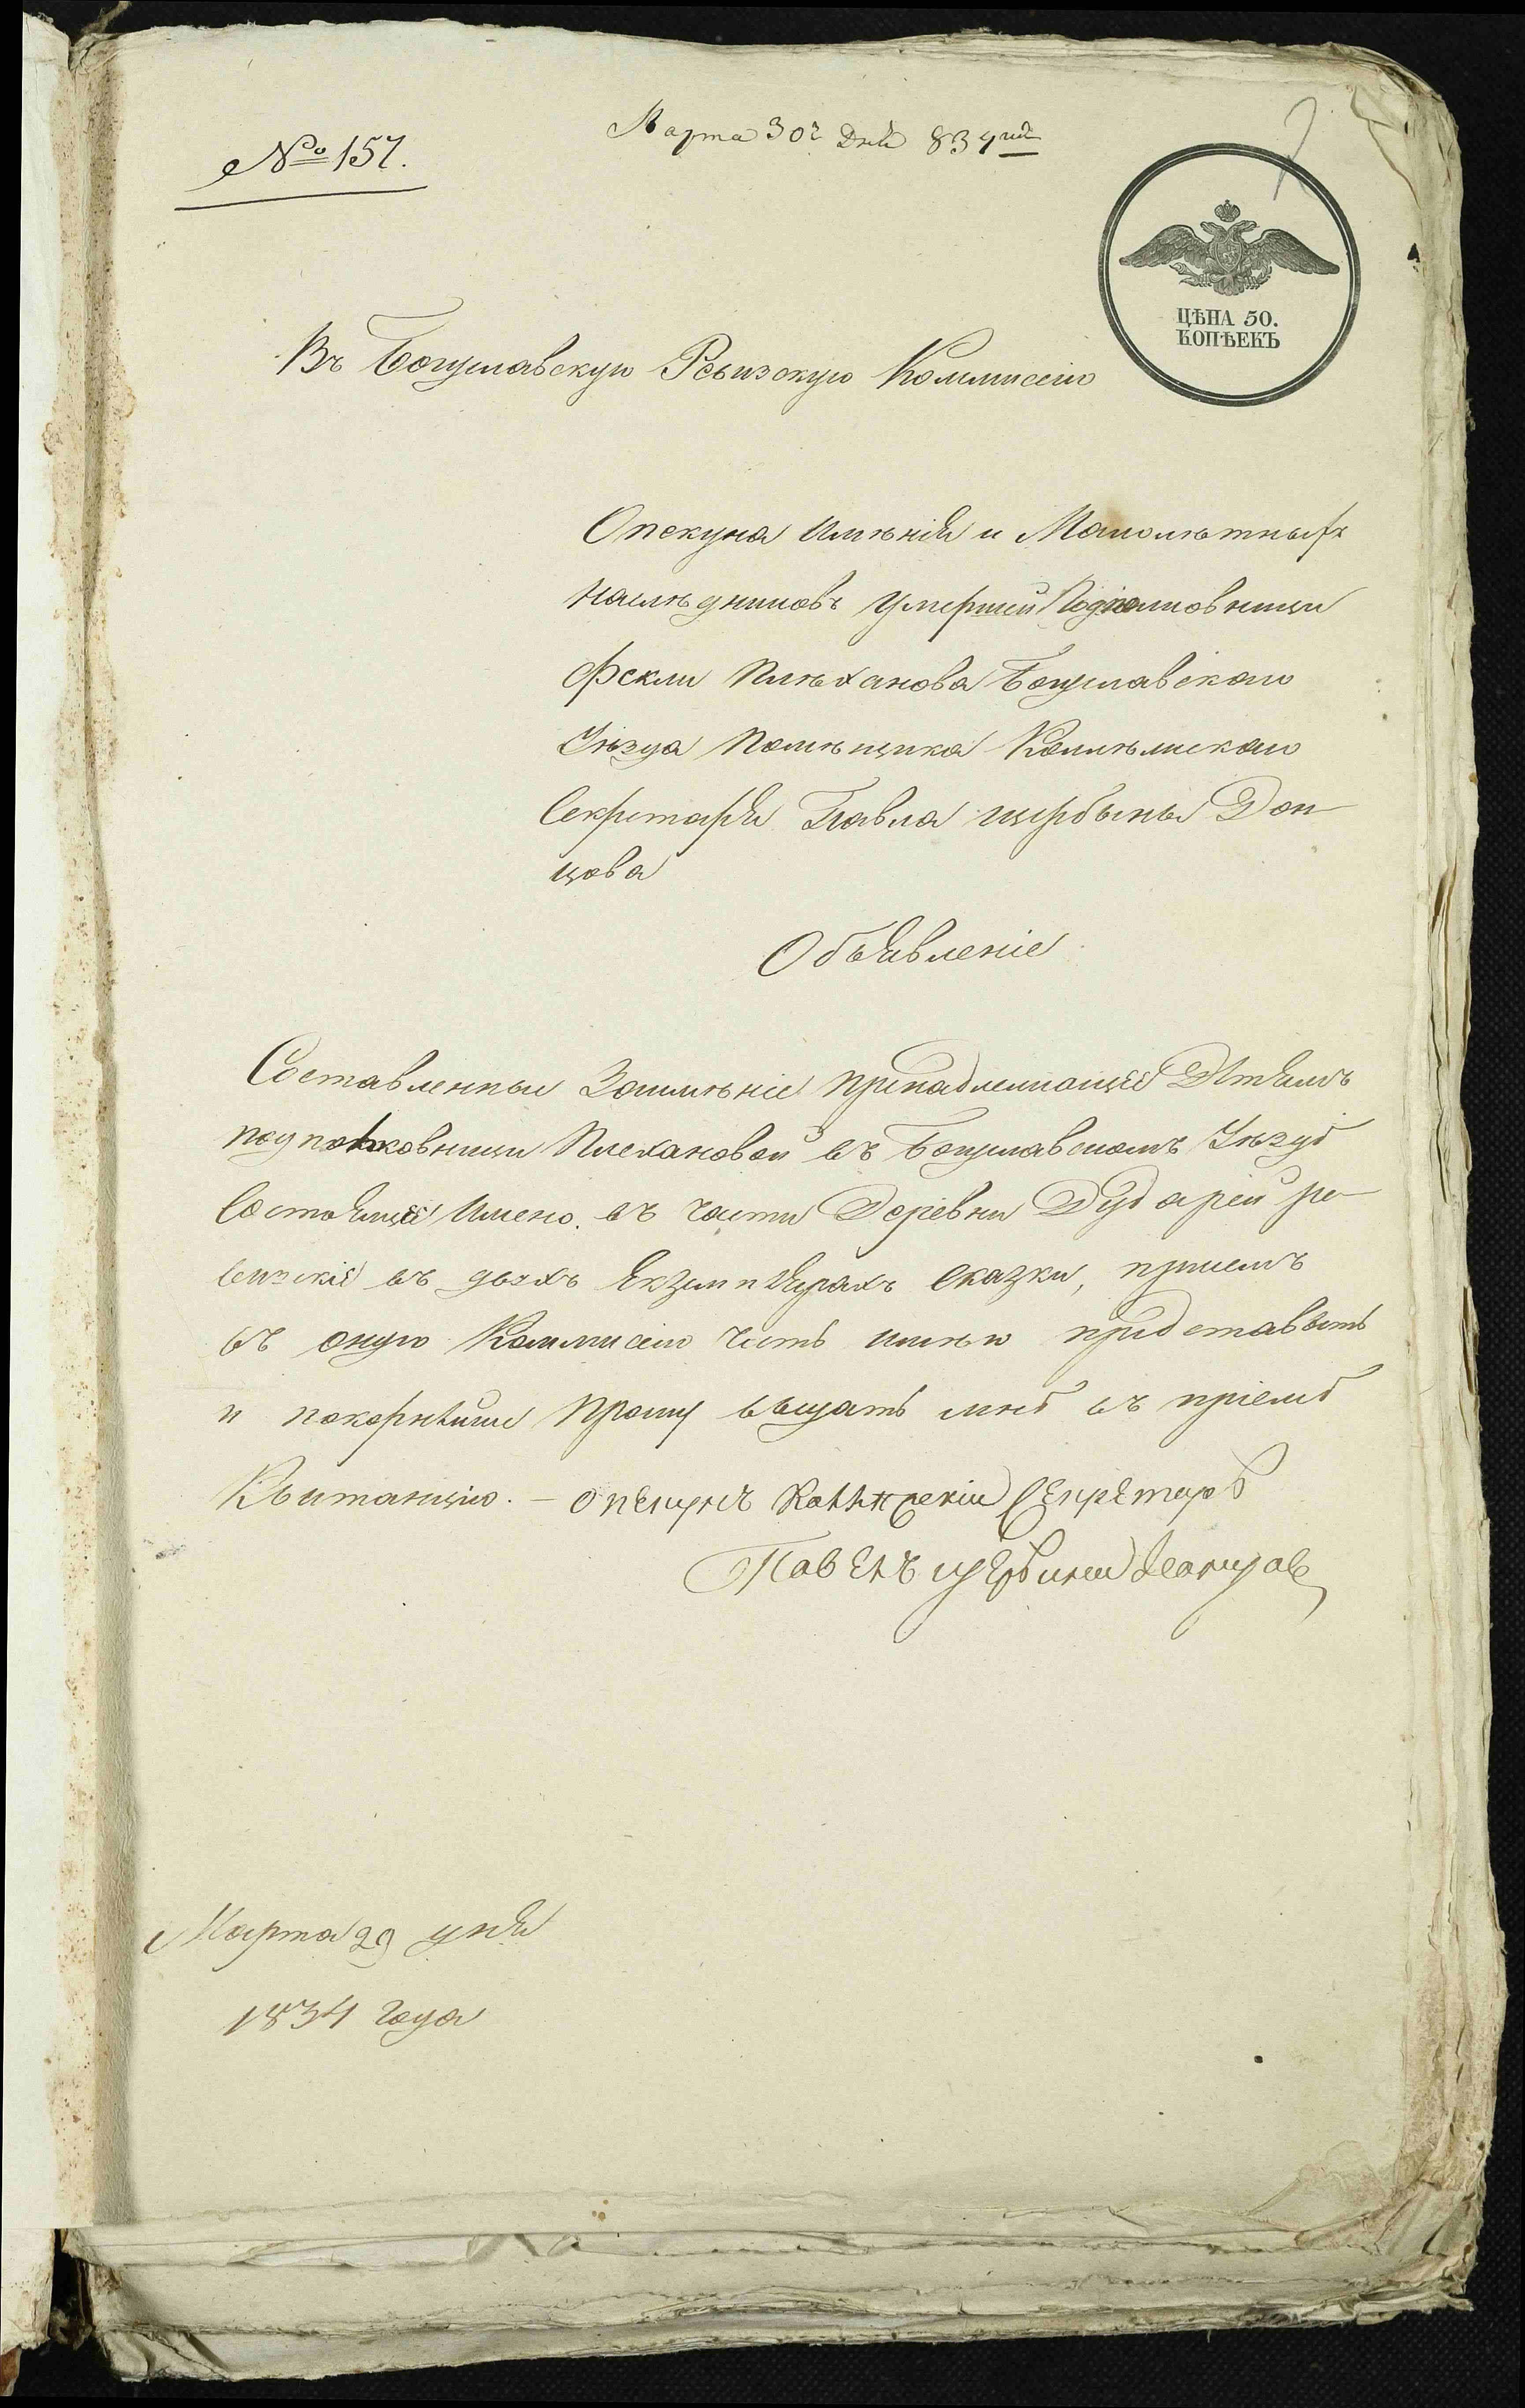 № 157.
Марта 30г дня 834 года
ЦѢНА 50.
КОПѢЕКЪ
Въ Богуславскую Ревизскую Коммиссію
Опекуна имѣнія и Малолѣтныхъ
наслѣдниковъ умершей Подполковници
Феклы Плѣханова Богуславскаго
Уѣзда Помѣщика Коллѣжскаго
Секретаря Павла щербины Дон-
цова
Объявленіе
Составленныи Заимѣніе принадлежащее Дѣтямъ
подполковници Плехановой въ Богуславскомъ Уѣздѣ
Состоящее Имено. въ части Деревни Дударей ре-
визскіе въ двухъ Екземплярахъ сказки, при семъ
въ оную Коммисію честь имѣю представить
и покорнѣйше прошу выдать мнѣ въ пріемѣ
Квитанцію. — опекунъ Коллежскій Секретарь
Павелъ щербина Донцовъ
Марта 29 дня
1834 года